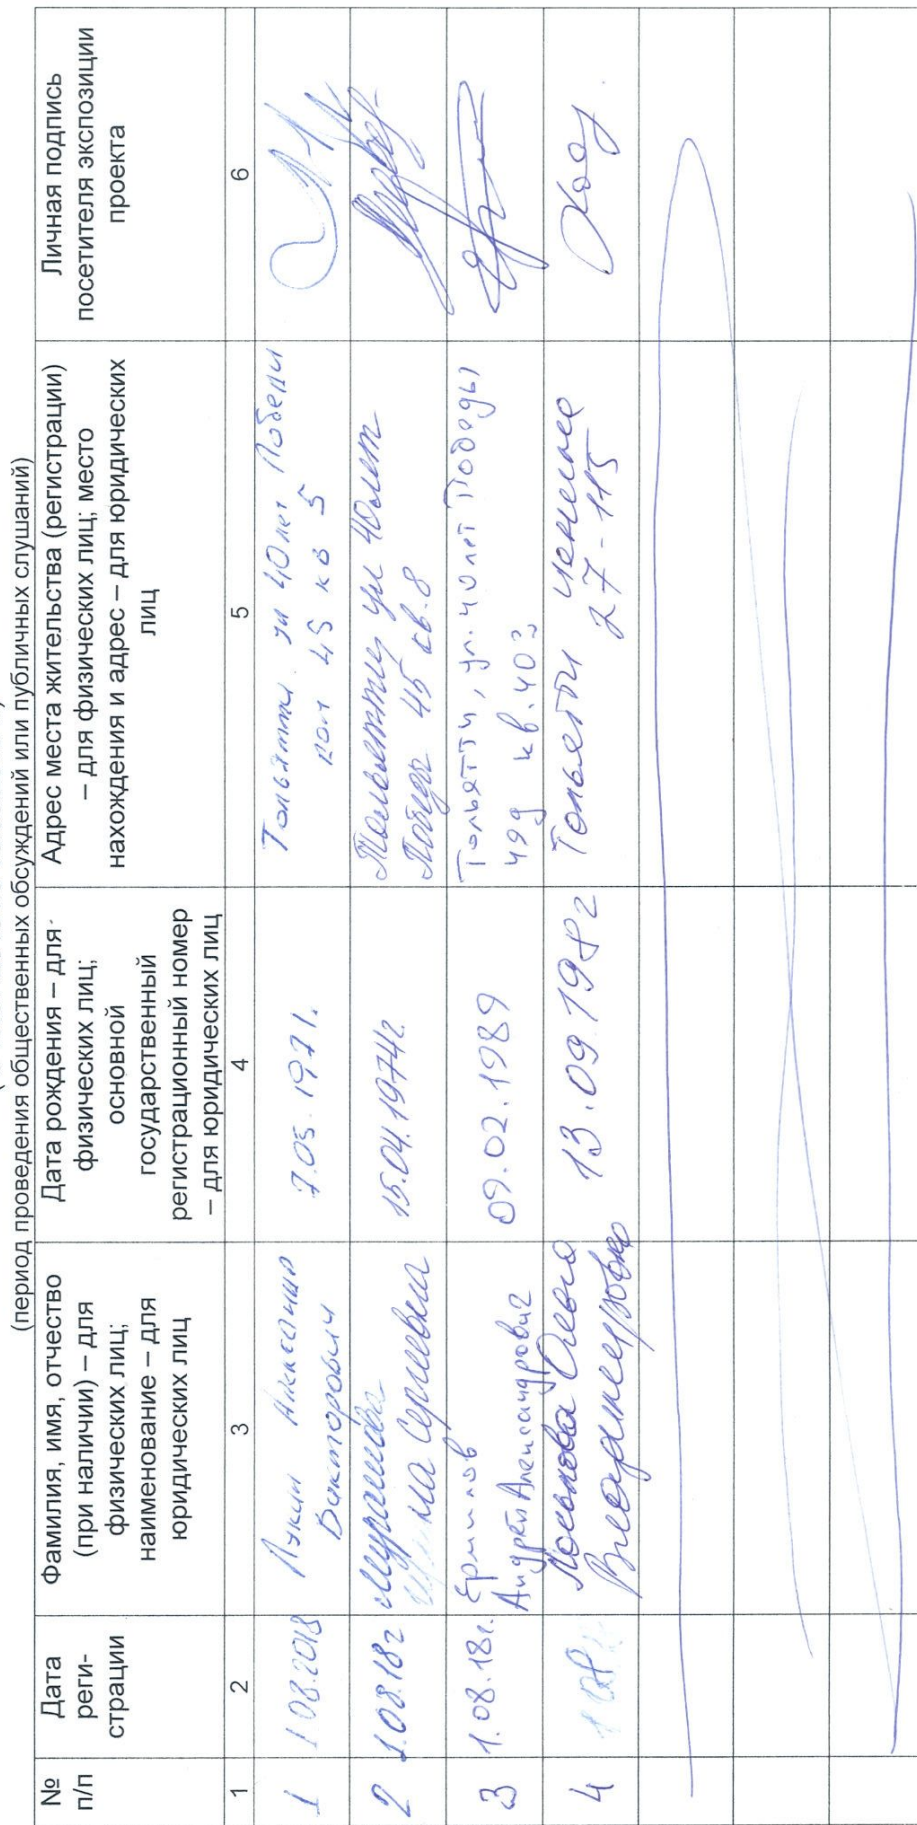 (период проведения общественных обсуждений или публичных слушаний)
№
п/п
Дата
реги-
страции
Фамилия, имя, отчество
(при наличии) – для
физических лиц;
наименование – для
юридических лиц
Дата рождения – для
физических лиц;
основной
государственный
регистрационный номер
– для юридических лиц
Адрес места жительства (регистрации)
– для физических лиц; место
нахождения и адрес – для юридических
лиц
Личная подпись
посетителя экспозиции
проекта
1
2
3
4
5
6
1
1 08.2018
Лукин
Викторович
7.05.1971.
Тольятти ул 40 лет Победы
45 кв 5
2
1.08.18г
Сергеевна
15.04.1974г.
Тольятти ул 40 лет
Победы 45 кв.8
3
1.08.18г.
Андрей Александрович
09.02.1989
Тольятти, ул. 40 лет Победы
49д кв. 403
4
Ольга
Владимировна
13.09.1982
Тольятти
27-115